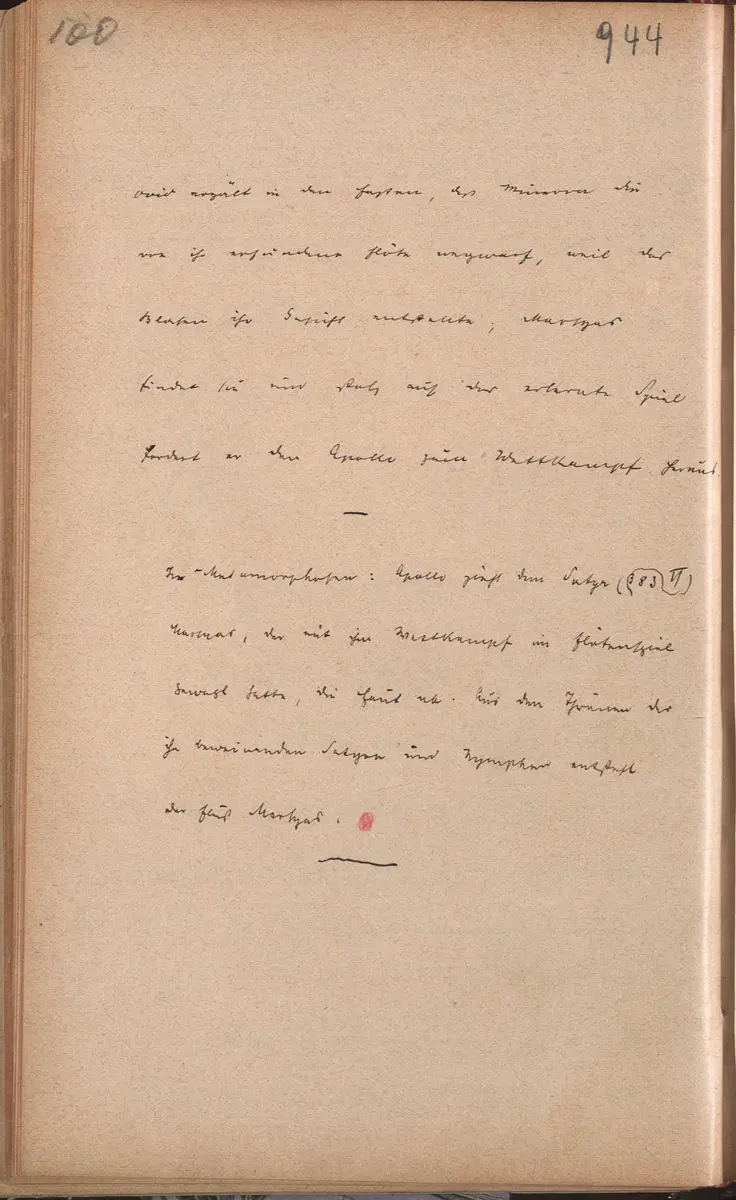 100
944
Ovid erzält in den Fasten, daß Minerva die
von ihr erfundene Flöte wegwarf, weil das
Blasen ihr Gesicht entstellte; Marsyas
findet sie und stolz auf das erlernte Spiel
fordert er den Apollo zum Wettkampf heraus.
In Metamorphosen: Apollo zieht dem Satyr (§83 II)
Marsyas, der mit ihm Wettkampf im Flötenspiel
gewagt hatte, die Haut ab. Aus den Thränen der
ihn beweinenden Satyrn und Nymphen entsteht
der Fluß Marsyas.